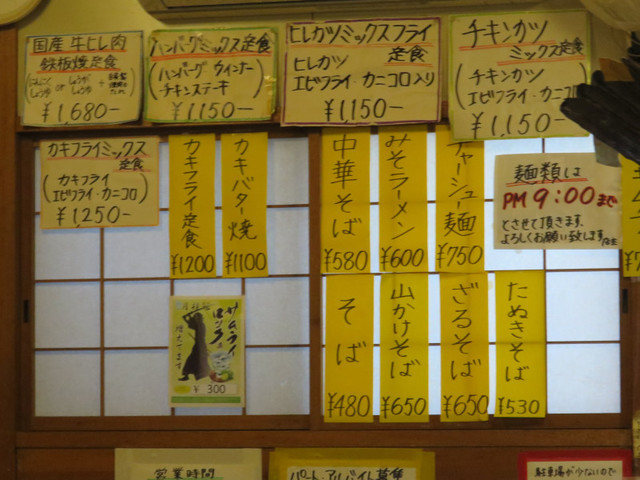 国産 牛ヒレ肉
鉄板焼定食
¥1,680-
ハンバーグミックス定食
(ハンバーグ ウィンナー
チキンステーキ)
¥1,150-
ヒレカツミックスフライ
定食
ヒレカツ
エビフライ・カニコロ入り
¥1,150-
チキンカツ
ミックス定食
(チキンカツ
エビフライ・カニコロ)
¥1,150-
カキフライミックス
定食
(カキフライ
エビフライ・カニコロ)
¥1,250-
カキフライ定食
¥1200
カキバター焼
¥1100
中華そば
¥580
みそラーメン
¥600
チャーシュー麺
¥750
麺類は
PM 9:00まで
とさせて頂きます。
よろしくお願い致します。
そば
¥480
山かけそば
¥650
ざるそば
¥650
たぬきそば
¥530
サムライ
ロック
増えてます
¥ 300
営業時間
パート・アルバイト募集
駐車場が少ないので